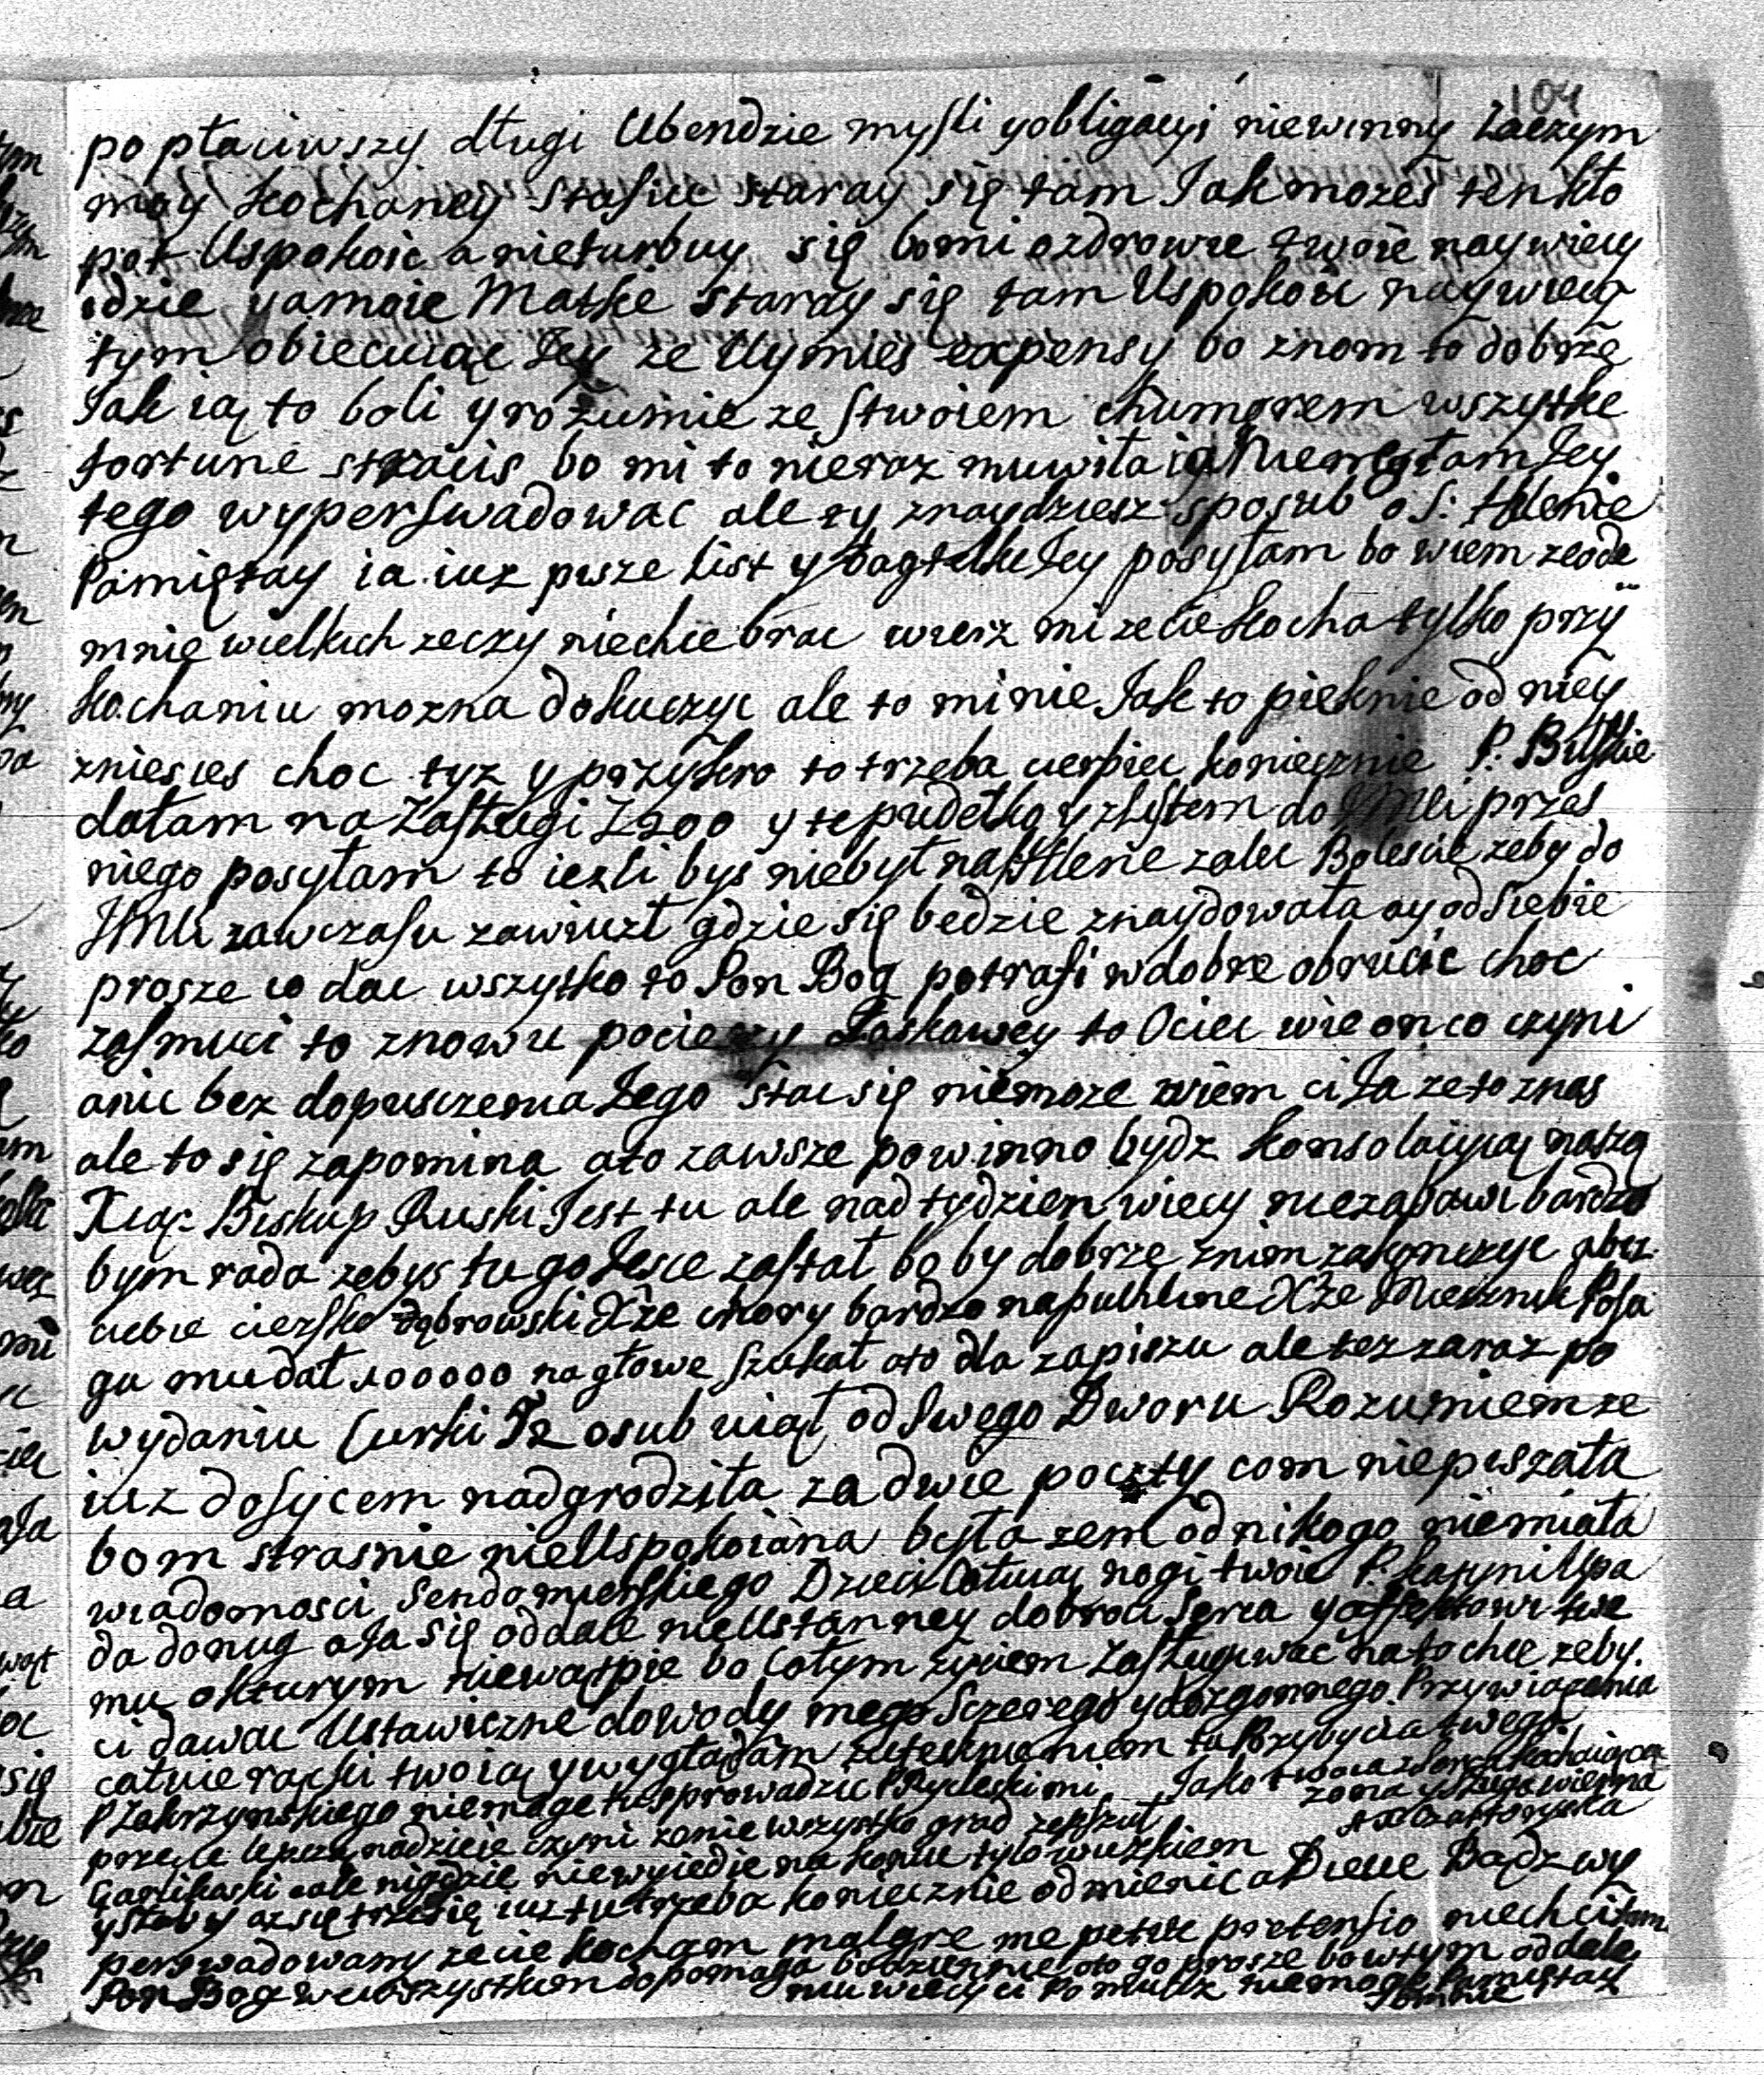 104
po płaciwszy długi Ubendzie mysli yobligacyi niewinny Zaczym
moy kochaney Stasiuc staray się tam Jak mozes ten kło
pot Uspokoic a nieturbuy się bo mi ozdrowie twoie naywiecy
idzie yamoie Matkie staray się tam Uspokoic naywiecy
tym obiecuiąc Jey ze Uymies expensy bo znom to dobrze
Jak ią to boli y rozumie ze stwoiem chumorem wszytke
fortune stracis bo mi to nieraz muwiła ia Niemogłam Jey
tego wyperswadowac ale ty znaydziesz sposub o S: Helenie
Pamiętay ia iuz pisze List y Bagtelke Jey posyłam bo wiem ze ode
mnie wielkich zeczy niechce brac wierz mi ze cie kocha tylko przy
kochaniu mozna dokuczyc ale to mi nie Jak to pieknie od niey
zniesies choc tyz y przykro to trzeba cierpiec koniecznie P.
dałam na Zasługi Z 200 y te pudełko y zlistem do JMci przes
niego posyłam to iezli bys niebył na S Helene zalec Bolescie zeby do
JMci zawczasu zawiuzł gdzie się bedzie znaydowała ay od Siebie
prosze co dac wszytko to Pon Bog potrafi wdobre obrucic choc
zasmuci to znowu pocieszy Łaskawey to Ociec wie on co czyni
anic bez dopusczenia Jego stac się niemoze wiem ci Ja ze to znas
ale to się zapomina ato zawsze powinno bydz konsolacyią naszą
Xiąz Biskup Ruski Jest tu ale nad tydzien wiecy niezabawi bardzo
bym rada zebys tu go Jesce zastał bo by dobrze znim zakonczyc abez
ciebie ciezsko Dąbrowski Xze chory bardzo napuchline Xze Miecznik Posa
gu mu dał 100000 na głowe szukał ato dla zapiszu ale tez zaraz po
wydaniu Curki 72 osub uiął od Swego Dworu Rozumiem ze
iuz dosycem nadgrodziła za dwie poczty com niepiszała
bom strasnie nieUspokoiana była zem od nikogo niemiała
wiadomosci Sendomierskiego Dzieci Całuią nogi twoie P. Upa
da donug a Ja się oddaie nieUstanney dobroci Serca y affektowi twe
mu okturym niewątpie bo całym zyciem Zasługiwac na to chce zeby
ci dawac Ustawiczne dowody mego Szczerego y dozgonnego Przywiązania
całuie rącki twoią y wyglądam zutesknieniem tu Przybycia twego
P Zakrzynskiego niemoge tu sprowadzic mi Jako twoia z Serca kochaiąca
zona y sługa wierna
przecie lepszą nadzieie czyni ze nie wszystko grad zepszuł
Czartoryska
cale nigdzie niewyiedie na koniu tylo wuzkiem
yslaby az się trzesie iuz tu trzeba koniecznie odmienic aDieue Bądz wy
perswadowany ze cie kocham malgre me petite pretensio niech ci tam
Pon Bog we wszystkiem dopomaga codziennie oto go prosze bo wtym oddale
niu wiecy ci Pomudz niemoge Pamiętay